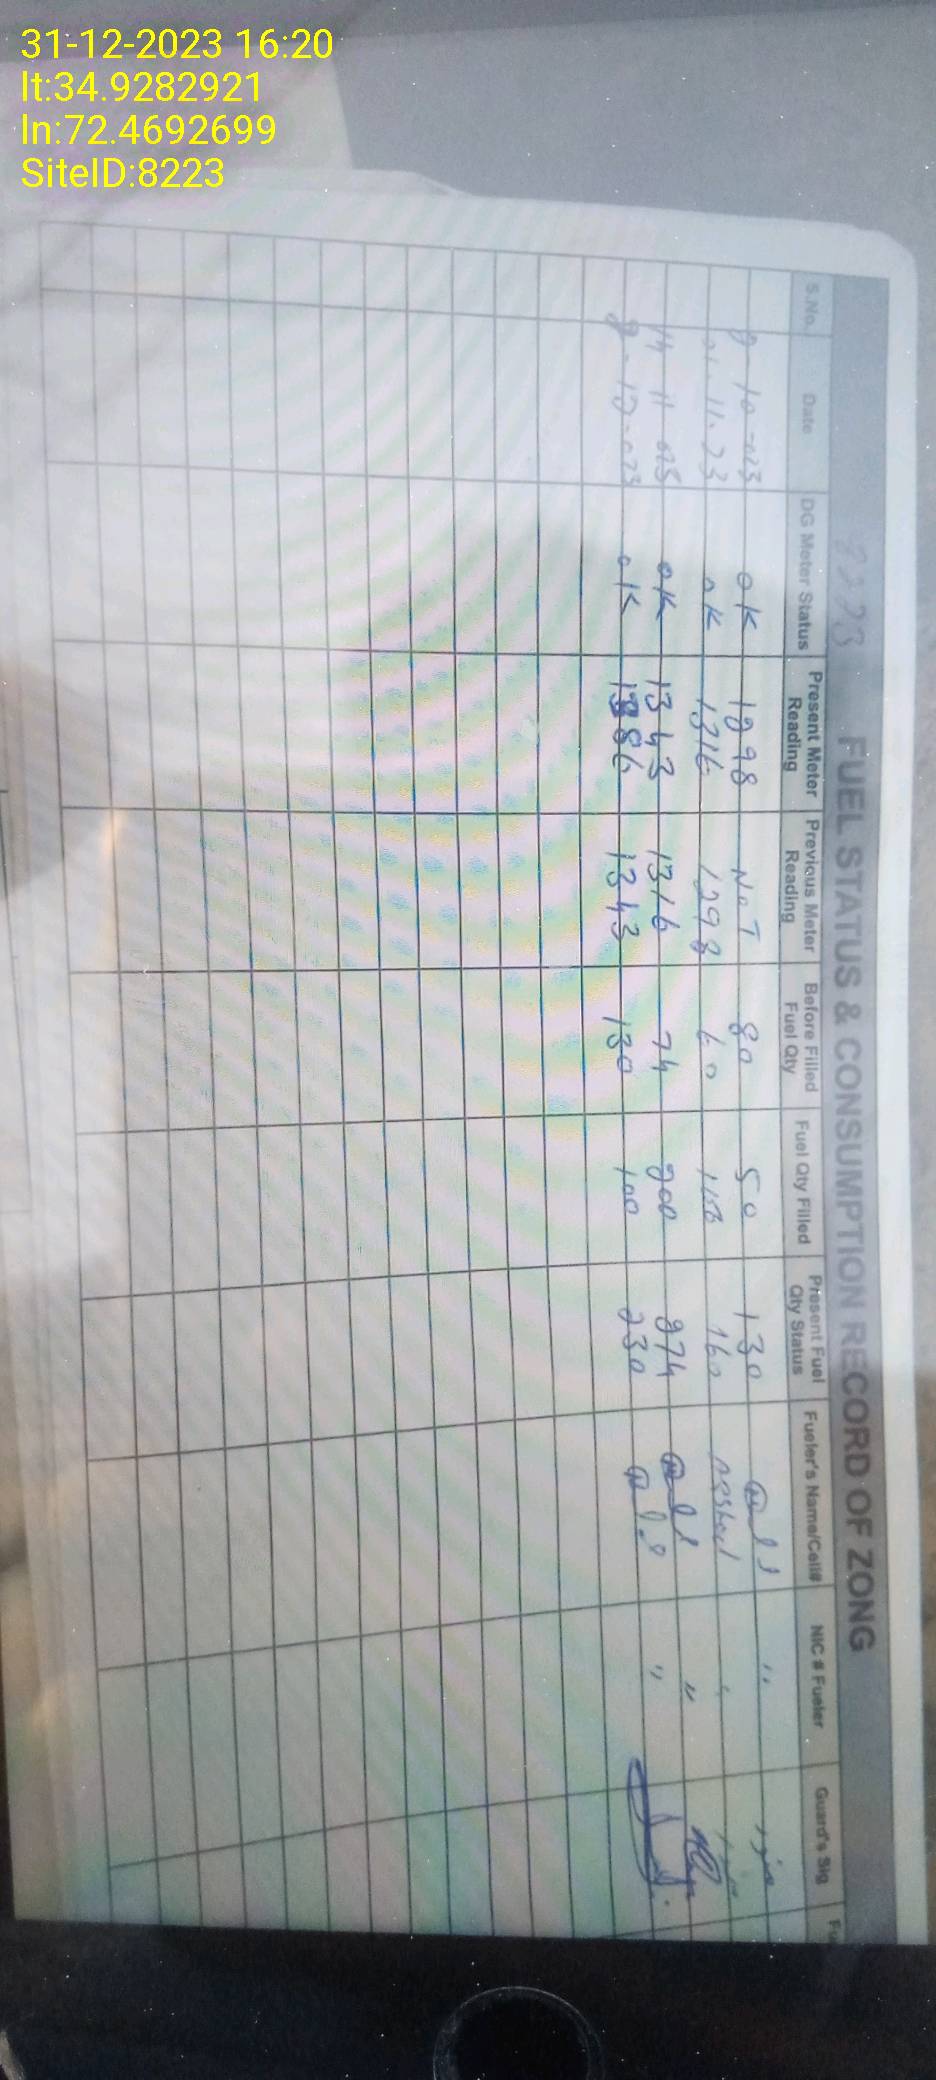 31-12-2023 16:20
lt:34.9282921
ln:72.4692699
SiteID:8223
FUEL STATUS & CONSUMPTION RECORD OF ZONG
S.No. Date DG Meter Status Present Meter Reading Previous Meter Reading Before Filled Fuel Qty Fuel Qty Filled Present Fuel Qty Status Fueler's Name/Cell# NIC # Fueler Guard's Sig
8-10-023 OK 1298 NoT 80 50 130 "
11.23 OK 1316 1298 60 160 "
14-11-023 OK 1343 1316 74 200 274 "
8-12-023 OK 1386 1343 130 100 230 "